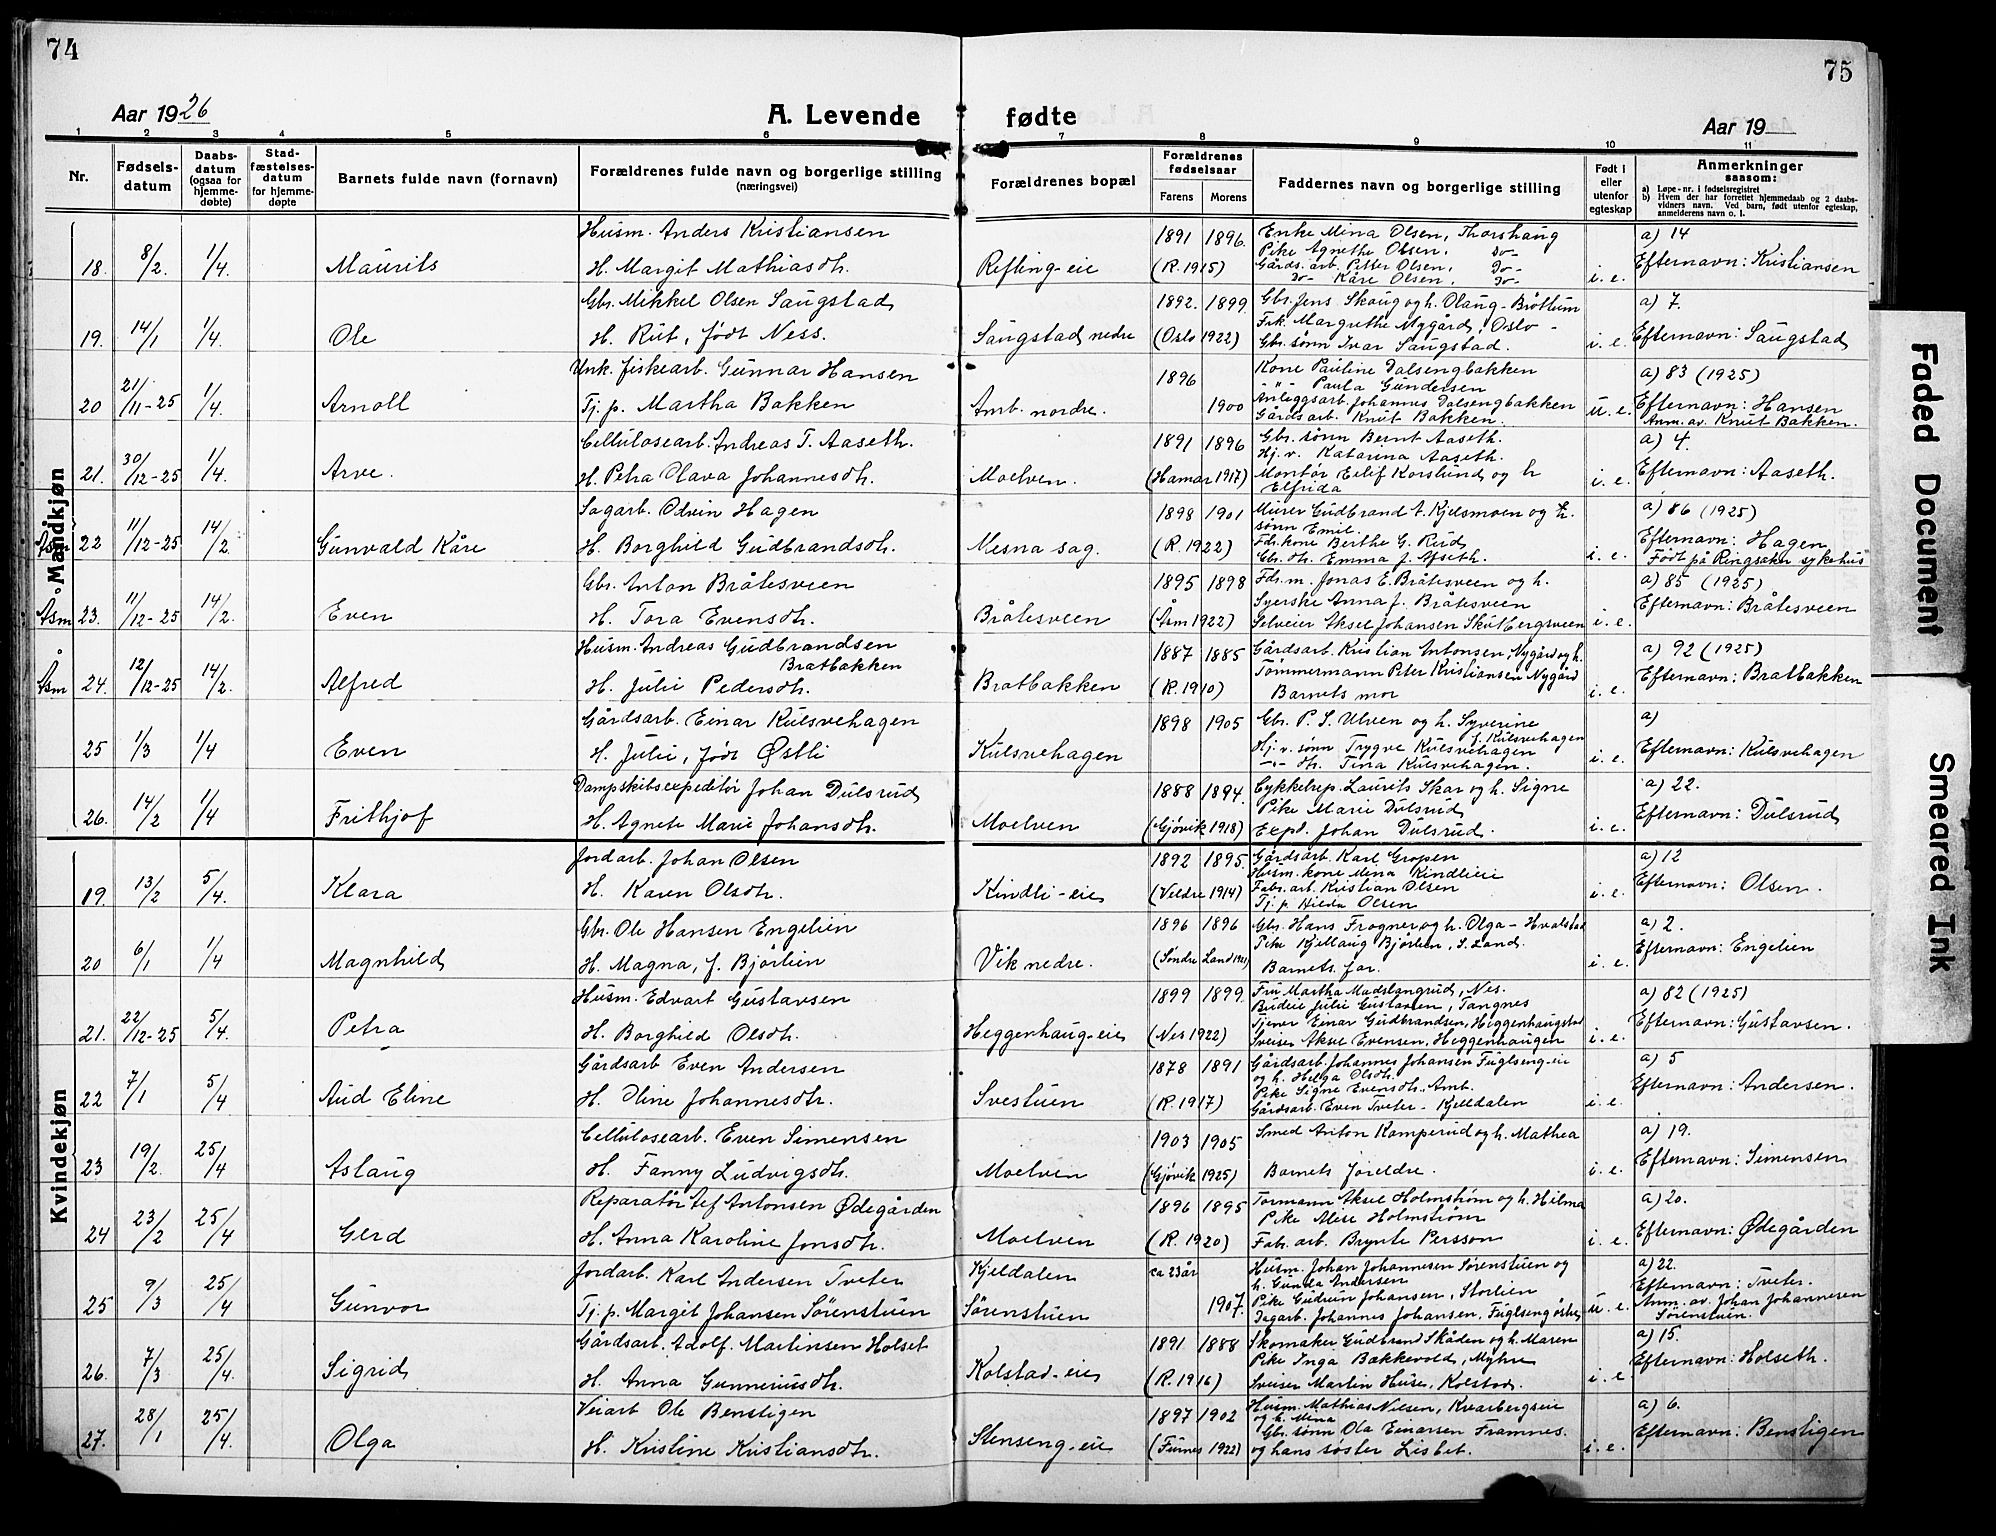 74
75
Aar 1926
A. Levende
fødte
Aar 19
1 2 3 4 5 6 7 8 9 10 11
Nr.
Fødsels-
datum
Daabs-
datum
(ogsaa for
hjemme-
døbte)
Stad-
fæstelses-
datum
for hjemme-
døpte
Barnets fulde navn (fornavn)
Forældrenes fulde navn og borgerlige stilling
(næringsvei)
Forældrenes bopæl
Forældrenes
fødselsaar
Farens Morens
Faddernes navn og borgerlige stilling
Født i
eller
utenfor
egteskap
Anmerkninger
saasom:
a) Løpe-nr. i fødselsregistret
b) Hvem der har forrettet hjemmedaab og 2 daabs-
vidners navn. Ved barn, født utenfor egteskap,
anmelderens navn o. l.
Mandkjøn
18. 8/2. 1/4. Maurits
Husm. Anders Kristiansen
H. Margit Mathiasdtr.
Refling-eie
1891 1896.
(R. 1915)
Enke Mina Olsen, Thorshaug
Pike Agnethe Olsen. Do-
Gårds.arb. Petter Olsen. Do-
Do- Kåre Olsen. Do-
i. e.
a) 14
Efternavn: Kristiansen
19. 14/1 1/4. Ole
Gbr. Mikkel Olsen Saugstad
H. Rut, født Ness.
Saugstad nedre
1892. 1899.
(Oslo 1922)
Gbr. Jens Skaug og h. Olaug - Brøttum
Frk. Margrethe Nygård, Oslo -
Gbr. sønn Ivar Saugstad.
i. e.
a) 7.
Efternavn: Saugstad
20 21/11-25 1/4. Arnold
Unk. fiskearb. Gunnar Hansen
Tj. p. Martha Bakken
Amb. nordre.
1896
1900
Kone Pauline Dalsengbakken
-"- Paula Gundersen
Anleggsarb. Johannes Dalsengbakken
Gårdsarb. Knut Bakken.
u. e.
a) 83 (1925)
Efternavn: Hansen
Anm. av. Knut Bakken.
21. 30/12-25 1/4. Arve.
Cellulosearb. Andreas T. Aaseth.
H. Petra Olava Johannesdtr.
Moelven.
1891 1896
(Hamar 1917)
Gbr. sønn Bernt Aaseth.
Hj. v. Katarina Aaseth.
Montør Eilif Korslund og h
Elfrida
i. e.
a) 4.
Efternavn: Aaseth.
Åsm 22 11/12-25 14/2 Gunvald Kåre
Sagarb. Odvin Hagen
H. Borghild Gudbrandsdtr.
Mesna sag.
1898 1901
(R. 1922)
Murer Gudbrand A. Kjelsmoen og h.
sønn Emil
Fdr.kone Berthe G. Rud
Gbr. dtr. Emma J. Afseth.
i. e.
a) 86 (1925)
Efternavn: Hagen
Født på Ringsaker sykehus
Åsm 23. 11/12-25 14/2. Even
Gbr. Anton Bråtesveen
H. Tora Evensdtr.
Bråtesveen
1895 1898
(Åsm 1922)
Fdr.m. Jonas E. Bråtesveen og h.
Syerske Anna J. Bråtesveen
Selveier Aksel Johansen Skutbergsveen
i. e.
a) 85 (1925)
Efternavn: Bråtesveen
Åsm 24. 12/12-25 14/2. Alfred
Husm. Andreas Gudbrandsen
Bratbakken
H. Julie Pedersdtr.
Bratbakken
1887 1885
(R. 1910)
Gårdsarb. Kristian Antonsen, Nygård og h.
Tømmermann Peter Kristiansen Nygård
Barnets mor
i. e.
a) 92 (1925)
Efternavn: Bratbakken
25 1/3 1/4 Even
Gårdsarb. Einar Kulsvehagen
H. Julie, født Østli
Kulsvehagen
1898 1905
Gbr. P. S. Ulven og h. Syverine
f. Kulsvehagen
Hj. v. sønn Trygve Kulsvehagen
-"- dtr. Tina Kulsvehagen.
i. e.
a)
Efternavn: Kulsvehagen
26. 14/2 1/4 Frithjof
Dampskibsexpeditør Johan Dulsrud
H. Agnete Marie Johansdtr.
Moelven
1888 1894.
(Gjøvik 1918)
Cykkelrep. Laurits Skar og h. Signe
Pike Marie Dulsrud
Expd. Johan Dulsrud.
i. e.
a) 22.
Efternavn: Dulsrud
Kvindekjøn
19. 13/2 5/4. Klara
Jordarb. Johan Olsen
H. Karen Olsdtr.
Kindli-eie
1892 1895.
(Veldre 1914)
Gårdsarb. Karl Gropen
Husm. kone Mina Kindlieie
Fabr. arb. Kristian Olsen
Tj. p Hilda Olsen
i. e.
a) 12
Efternavn: Olsen.
20 6/1 1/4 Magnhild
Gbr. Ole Hansen Engelien
H. Magna, f. Bjørlien
Vik nedre.
1896 1896
(Søndre Land 1921)
Gbr. Hans Frogner og h. Olga - Hvalstad
Pike Kjellaug Bjørlien, S. Land.
Barnets far.
i. e.
a) 2.
Efternavn: Engelien
21. 22/12-25 5/4. Petra
Husm. Edvart Gustavsen
H. Borghild Olsdtr.
Heggenhaug-eie
1899 1899.
(Nes 1922)
Fru Martha Madslangrud, Nes.
Budeie Julie Gustavsen, Tangnes
Tjener Einar Gudbrandsen, Heggenhaugstad
Sveiser Aksel Evensen, Heggenhaugen
i. e.
a) 82 (1925)
Efternavn: Gustavsen.
22 7/1 5/4 Aud Eline
Gårdsarb Even Andersen
H. Oline Johannesdtr.
Svestuen
1878 1891
(R. 1917)
Gårdsarb. Johannes Johansen Fuglseng-eie
og h. Helga Olsdtr.
Pike Signe Evensdtr. Amb.
Gårdsarb. Even Tveter - Kjelldalen
i. e.
a) 5
Efternavn: Andersen.
23 19/2. 25/4 Aslaug
Cellulosearb. Even Simensen
H. Fanny Ludvigsdtr.
Moelven
1903 1905
(Gjøvik 1925)
Smed Anton Kamperud og h. Mathea
Barnets foreldre.
i. e.
a) 19.
Efternavn: Simensen
24 23/2 25/4 Gerd
Reparatør Lef Antonsen Ødegården
H. Anna Karoline Jonsdtr.
Moelven
1896 1895
(R. 1920)
Formann Aksel Holmstrøm og h. Hilma
Pike Alise Holmstrøm
Fabr. arb. Brynte Persson
i. e.
a) 20.
Efternavn: Ødegården
25 9/3 25/4 Gunvor
Jordarb. Karl Andersen Tveter
Tj. p. Margit Johansen Sørenstuen
Kjeldalen
Sørenstuen
ca 23 år
1907.
Husm. Johan Johannesen Sørenstuen og
h. Gunda Andersen
Pike Gudrun Johansen, Storlien
Dagarb. Johannes Johansen, Fuglseng østre
u. e.
a) 22.
Efternavn: Tveter.
Anm. av. Johan Johannesen
Sørenstuen.
26. 7/3 25/4. Sigrid
Gårdsarb. Adolf. Martinsen Holset
H. Anna Gunneriusdtr.
Kolstad-eie
1891 1888
(R. 1916)
Skomaker Gudbrand Skåden og h. Maren
Pike Inga Bakkevold, Myhre
Sveiser Martin Huse, Kolstad.
i. e.
a) 15.
Efternavn: Holseth.
27. 28/1 25/4. Olga
Veiarb Ole Benstigen
H. Kristine Kristiansdtr.
Stenseng-eie
1897 1902
(Furnes 1922)
Husm. Mathias Nilsen, Kvarbergseie
og h. Mina
Gbr. sønn Ola Einarsen Framnes.
og hans søster Lisbet.
i. e.
a) 6.
Efternavn: Benstigen
Faded Document
Smeared Ink